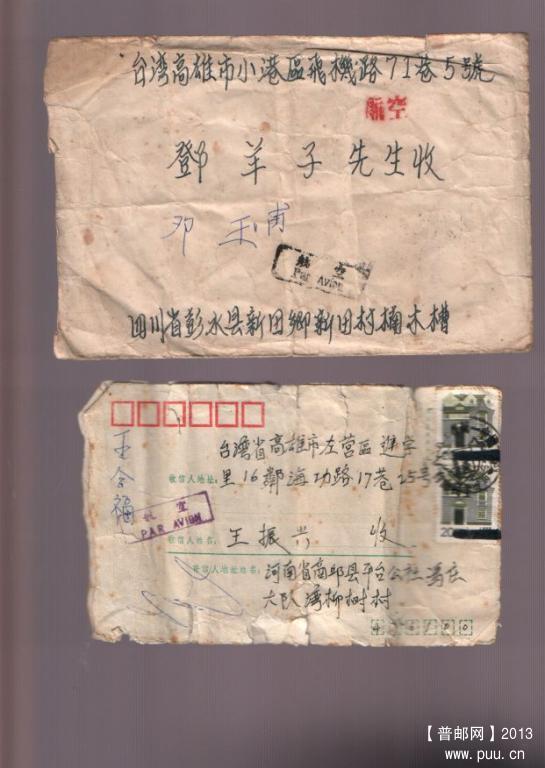 台湾高雄市小港區飛機路71巷5號
航空
鄧羊子先生收
邓玉甫
航空
PAR AVION
四川省彭水县新田鄉新田村桶木槽
王金福
台湾省高雄市左营區進字
收信人地址:
里16鄰海功路17巷25号
航空
PAR AVION
收信人姓名:
王振兴 收
寄信人地址姓名:
河南省商邱县平台公社
大队湾柳树村
20
【普邮网】2013
www.puu.cn